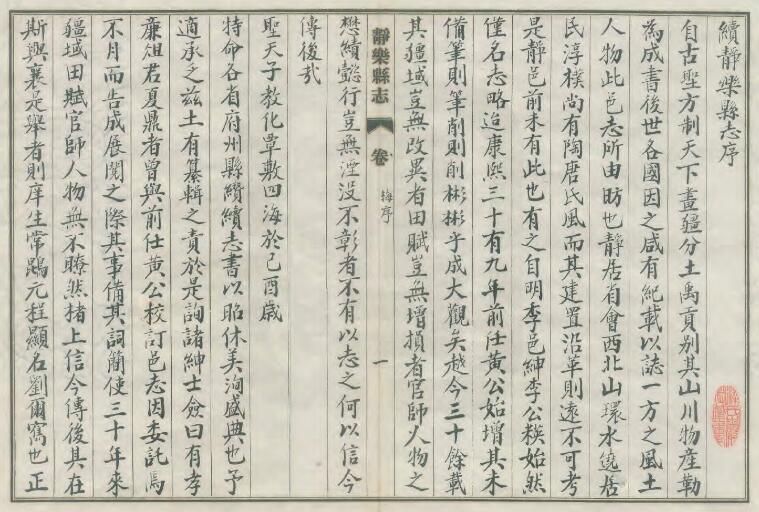 續靜樂縣志序
自古聖方制天下畫疆分土禹貢別其山川物產勒
為成書後世各國因之咸有紀載以誌一方之風土
人物此邑志所由昉也靜居省會西北山環水繞居
民淳樸尚有陶唐氏風而其建置沿革則遠不可考
是靜邑前未有此也有之自明季邑紳李公始然
僅名志略迨康熙三十有九年前任黃公始增其未
備筆則筆削則削彬彬乎成大觀矣越今三十餘載
其疆域豈無改異者田賦豈無增損者官師人物之
靜樂縣志
卷
梅序
一
懋績懿行豈無湮沒不彰者不有以志之何以信今
傳後哉
聖天子教化覃敷四海於己酉歲
特命各省府州縣纘續志書以昭休美洵盛典也予
適承之茲土有纂輯之責於是詢諸紳士僉曰有孝
廉俎君夏鼎者曾與前任黃公校訂邑志因委託焉
不月而告成展閱之際其事備其詞簡使三十年來
疆域田賦官師人物無不瞭然楮上信今傳後其在
斯與襄是舉者則庠生常鵾元程顯名劉爾寫也正